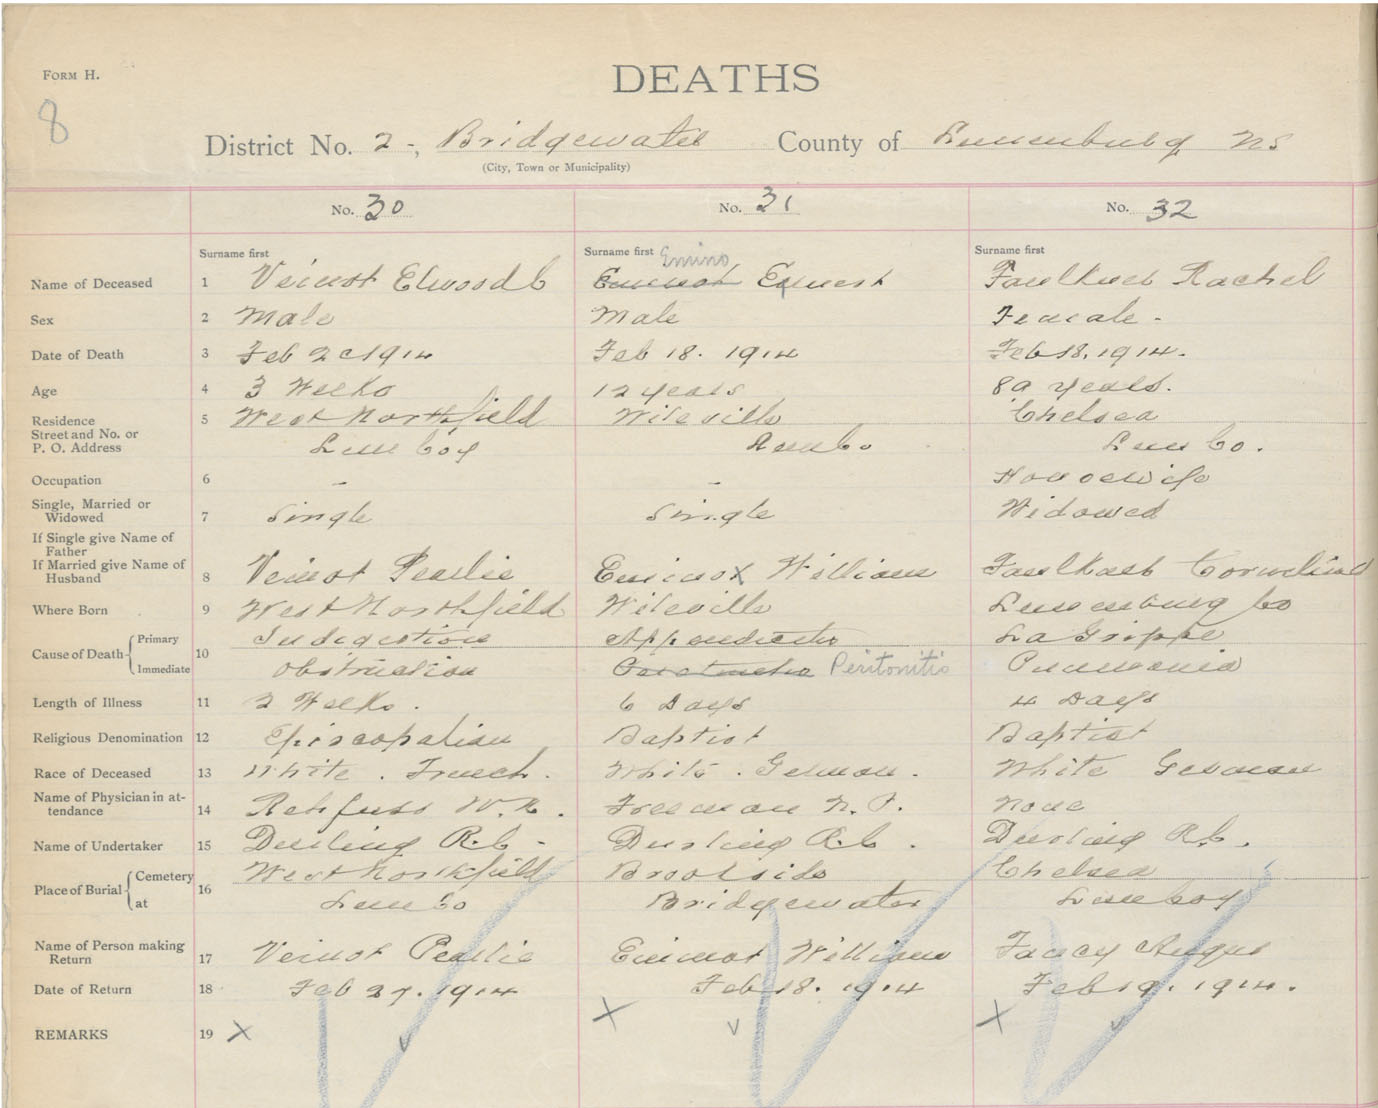 FORM H.
DEATHS
8
District No. 2-, Bridgewater County of Lunenburg NS
(City, Town or Municipality)
No. 30 No. 31 No. 32
Surname first Surname first Ernino Surname first
Name of Deceased 1 Veinot Elwood C Ernest Faulkner Rachel
Sex 2 Male Male Female -
Date of Death 3 Feb 1914 Feb 18. 1914 Feb 18. 1914.
Age 4 3 Weeks 12 years 89 years.
Residence 5 West Northfield Wileville Chelsea
Street and No. or
P. O. Address Lun Coy Lun Co Lun Co.
Occupation 6 - - Housewife
Single, Married or
Widowed 7 Single Single Widowed
If Single give Name of
Father
If Married give Name of
Husband 8 Veinot Pearlie William Faulkner Cornelius
Where Born 9 West Northfield Wileville Lunenburg Co
Cause of Death 10 Primary Indigestion Appendicitis La Grippe
Immediate Obstruction Peritonitis Pneumonia
Length of Illness 11 2 Weeks. 6 Days 4 Days
Religious Denomination 12 Episcopalian Baptist Baptist
Race of Deceased 13 White. French. White. German. White German
Name of Physician in at-
tendance 14 Rehfuss W. N. Freeman N. P. None
Name of Undertaker 15 Durling R. C - Durling R. C. Durling R. C.
Place of Burial 16 Cemetery West Northfield Brookside Chelsea
at Lun Co Bridgewater Lun Coy
Name of Person making
Return 17 Veinot Pearlie William Fancy Angus
Date of Return 18 Feb 27. 1914 Feb 18. 1914 Feb 19. 1914.
REMARKS 19 X X X